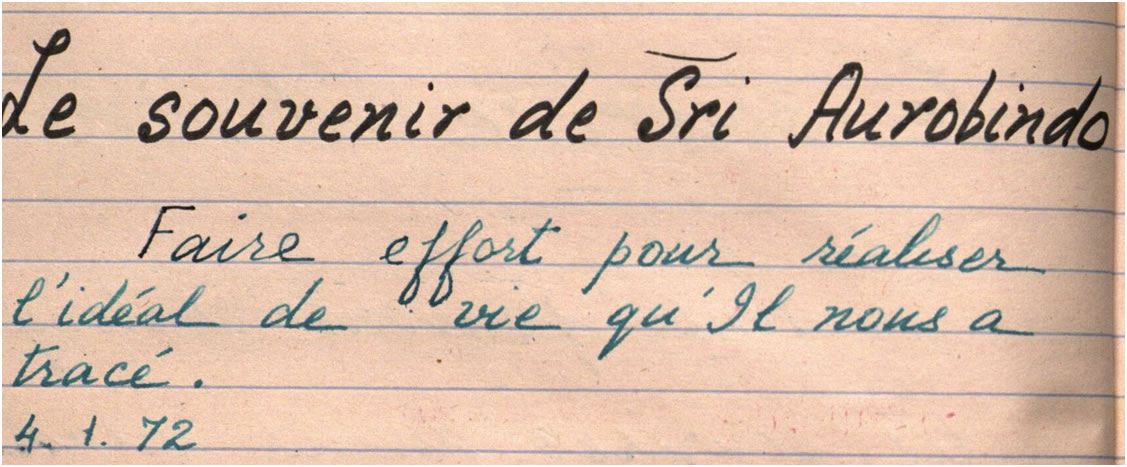 Le souvenir de Sri Aurobindo
Faire effort pour réaliser
l'idéal de vie qu'Il nous a
tracé.
4. 1. 72